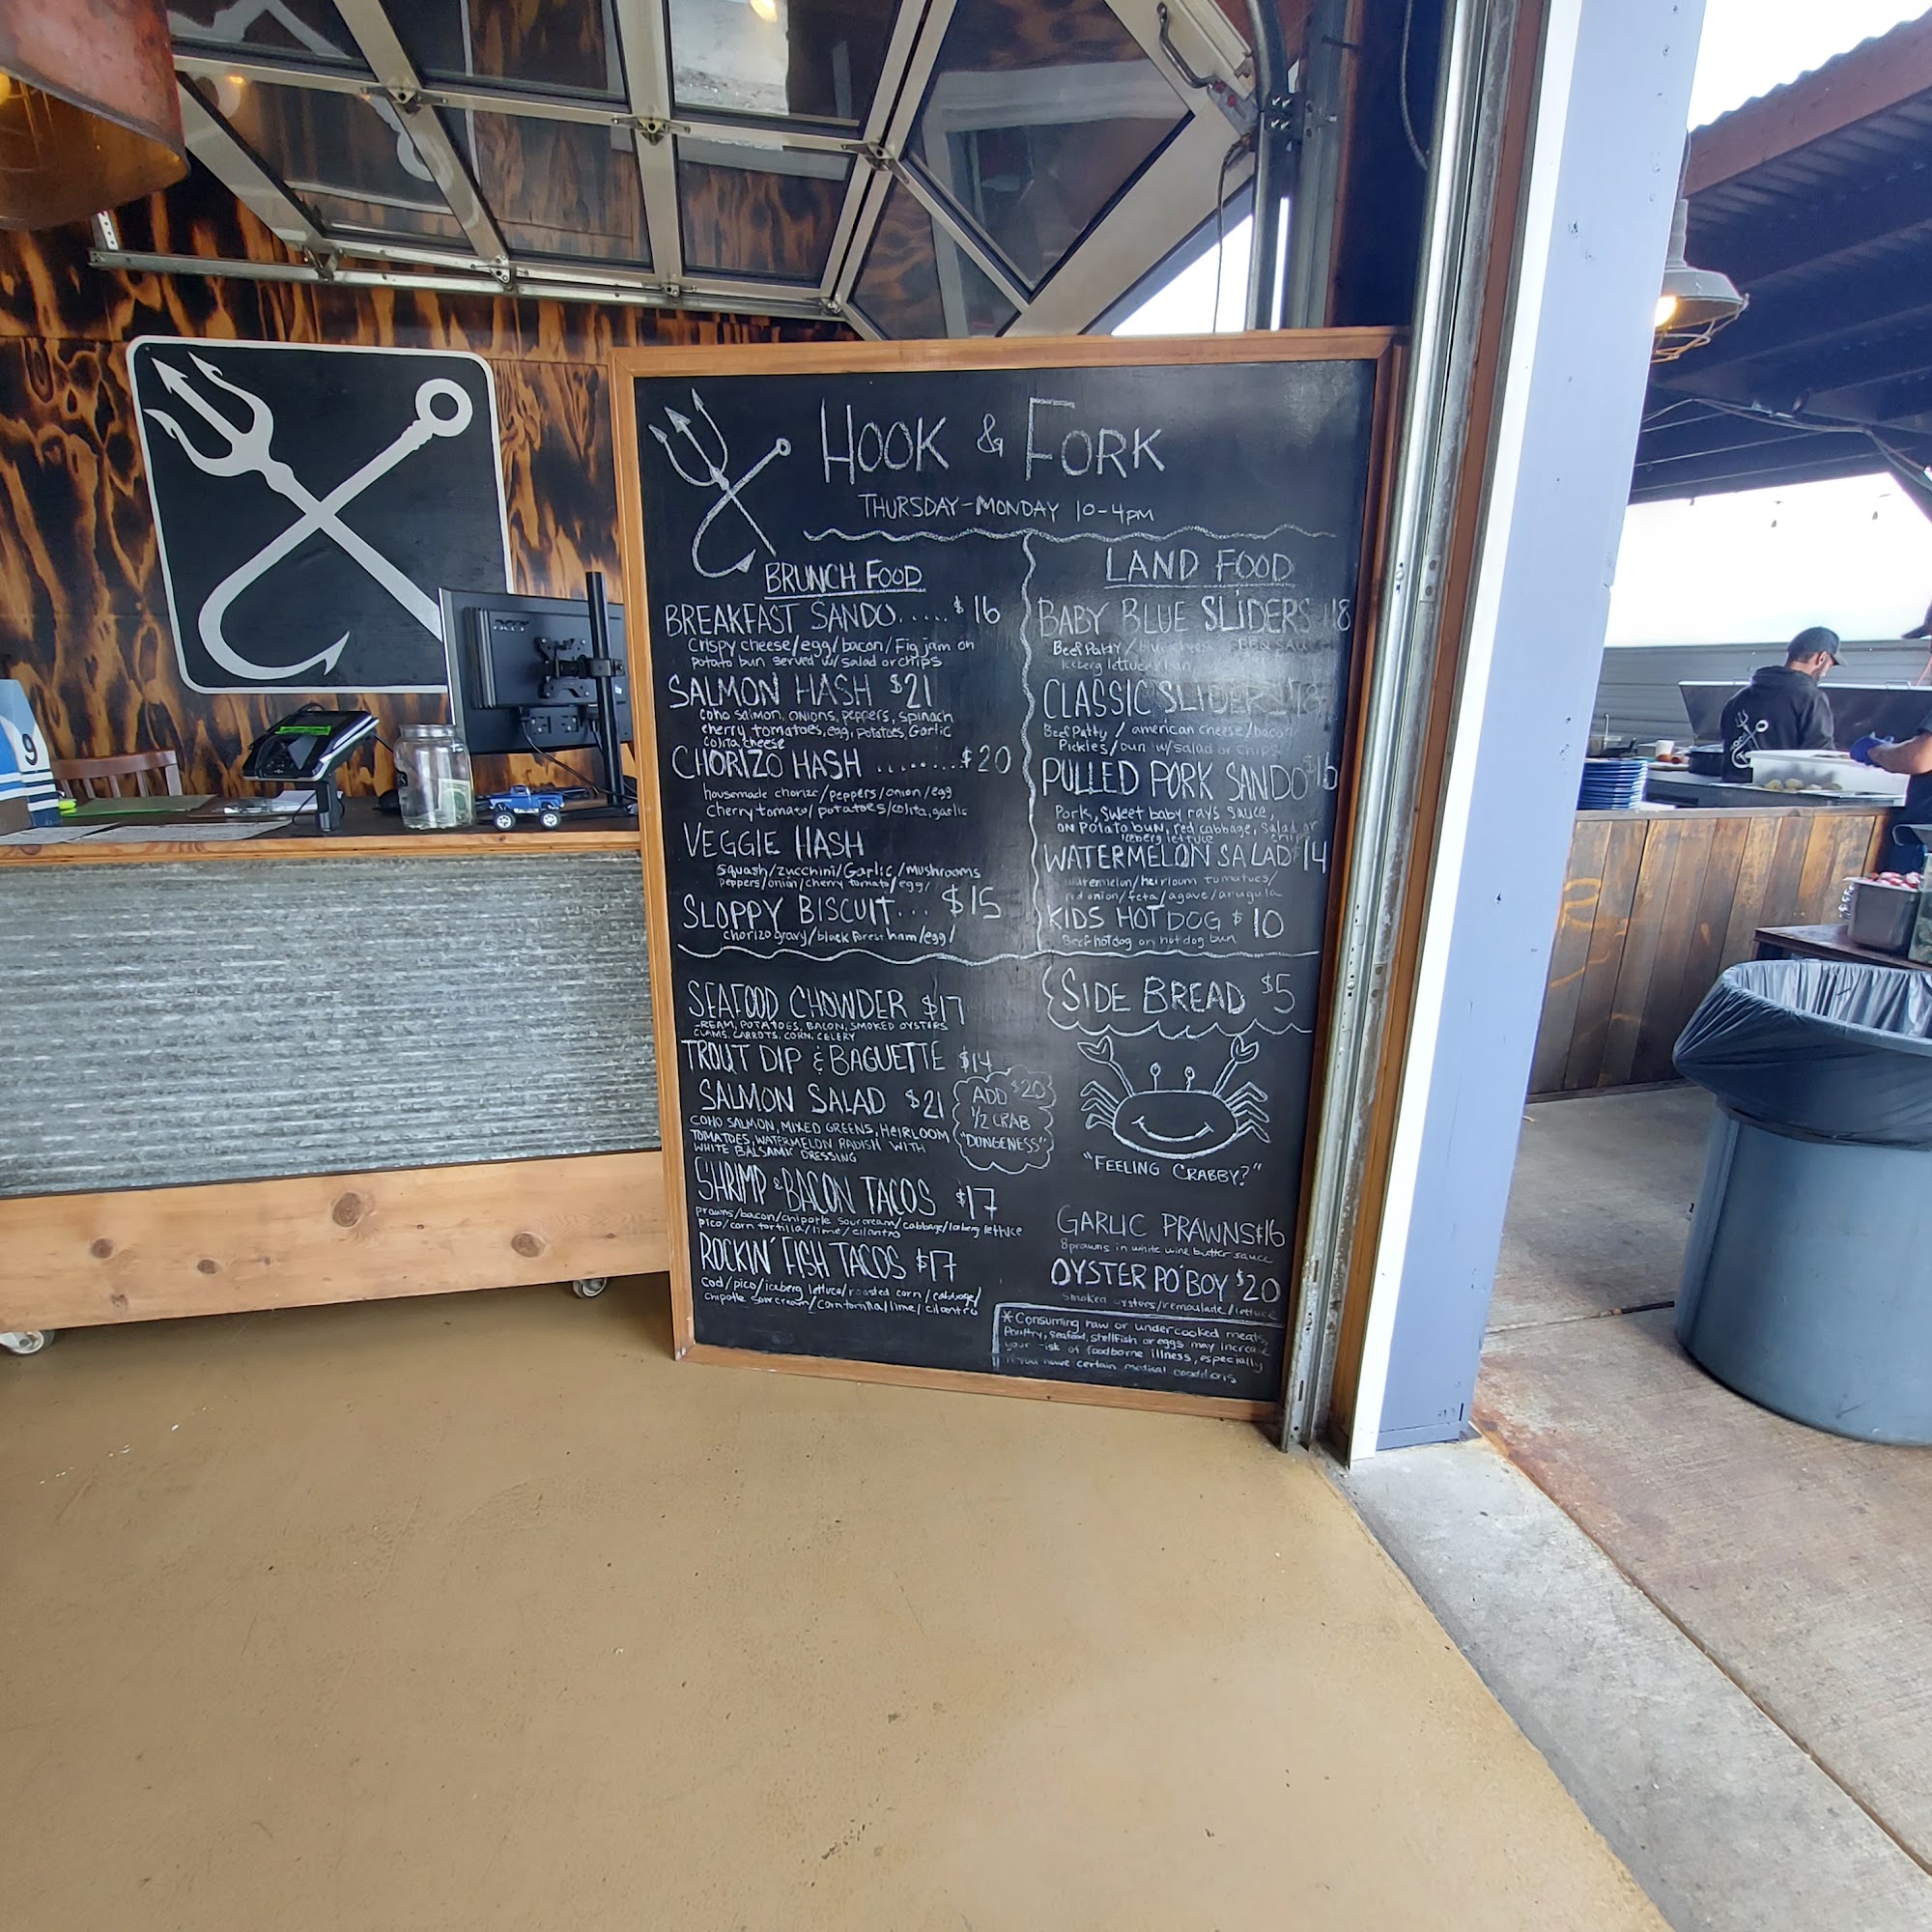 HOOK & FORK
THURSDAY-MONDAY 10-4PM
BRUNCH FOOD
BREAKFAST SANDO..... $16
Crispy cheese/egg/bacon/Fig jam on
potato bun served w/salad or chips
SALMON HASH $21
coho salmon, onions, peppers, spinach
cherry tomatoes, egg, potatoes, Garlic
cojita cheese
CHORIZO HASH .........$20
housemade chorizo/peppers/onion/egg
Cherry tomato/potatoes/cojita, garlic
VEGGIE HASH
squash/zucchini/Garlic/mushrooms
peppers/onion/cherry tomato/egg/
SLOPPY BISCUIT... $15
chorizo gravy/black forest ham/egg/
LAND FOOD
BABY BLUE SLIDERS 18
Beef Patty / BBQ SAUCE
Iceberg lettuce/bun
CLASSIC SLIDERS
Beef Patty / american cheese/bacon
Pickles/bun w/salad or chips
PULLED PORK SANDO $16
Pork, Sweet baby rays sauce,
on Potato bun, red cabbage, Salad or
Iceberg lettuce chips
WATERMELON SALAD $14
watermelon/heirloom tomatoes/
red onion/feta/agave/arugula
KIDS HOT DOG $10
Beef hotdog on hot dog bun
SEAFOOD CHOWDER $17
CREAM, POTATOES, BACON, SMOKED OYSTERS
CLAMS, CARROTS, CORN, CELERY
TROUT DIP & BAGUETTE $14
SALMON SALAD $21
COHO SALMON, MIXED GREENS, HEIRLOOM
TOMATOES, WATERMELON RADISH WITH
WHITE BALSAMIC DRESSING
ADD $20
1/2 CRAB
"DUNGENESS"
SHRIMP & BACON TACOS $17
prawns/bacon/chipotle sour cream/cabbage/Iceberg lettuce
pico/corn tortilla/lime/cilantro
ROCKIN' FISH TACOS $17
Cod/pico/iceberg lettuce/roasted corn/cabbage/
Chipotle sour cream/Corn tortilla/lime/cilantro
SIDE BREAD $5
"FEELING CRABBY?"
GARLIC PRAWNS $16
8 prawns in white wine butter sauce
OYSTER PO'BOY $20
Smoked oysters/remoulade/lettuce
*Consuming raw or undercooked meats,
Poultry, seafood, shellfish or eggs may increase
your risk of foodborne illness, especially
if you have certain medical conditions
9
acer